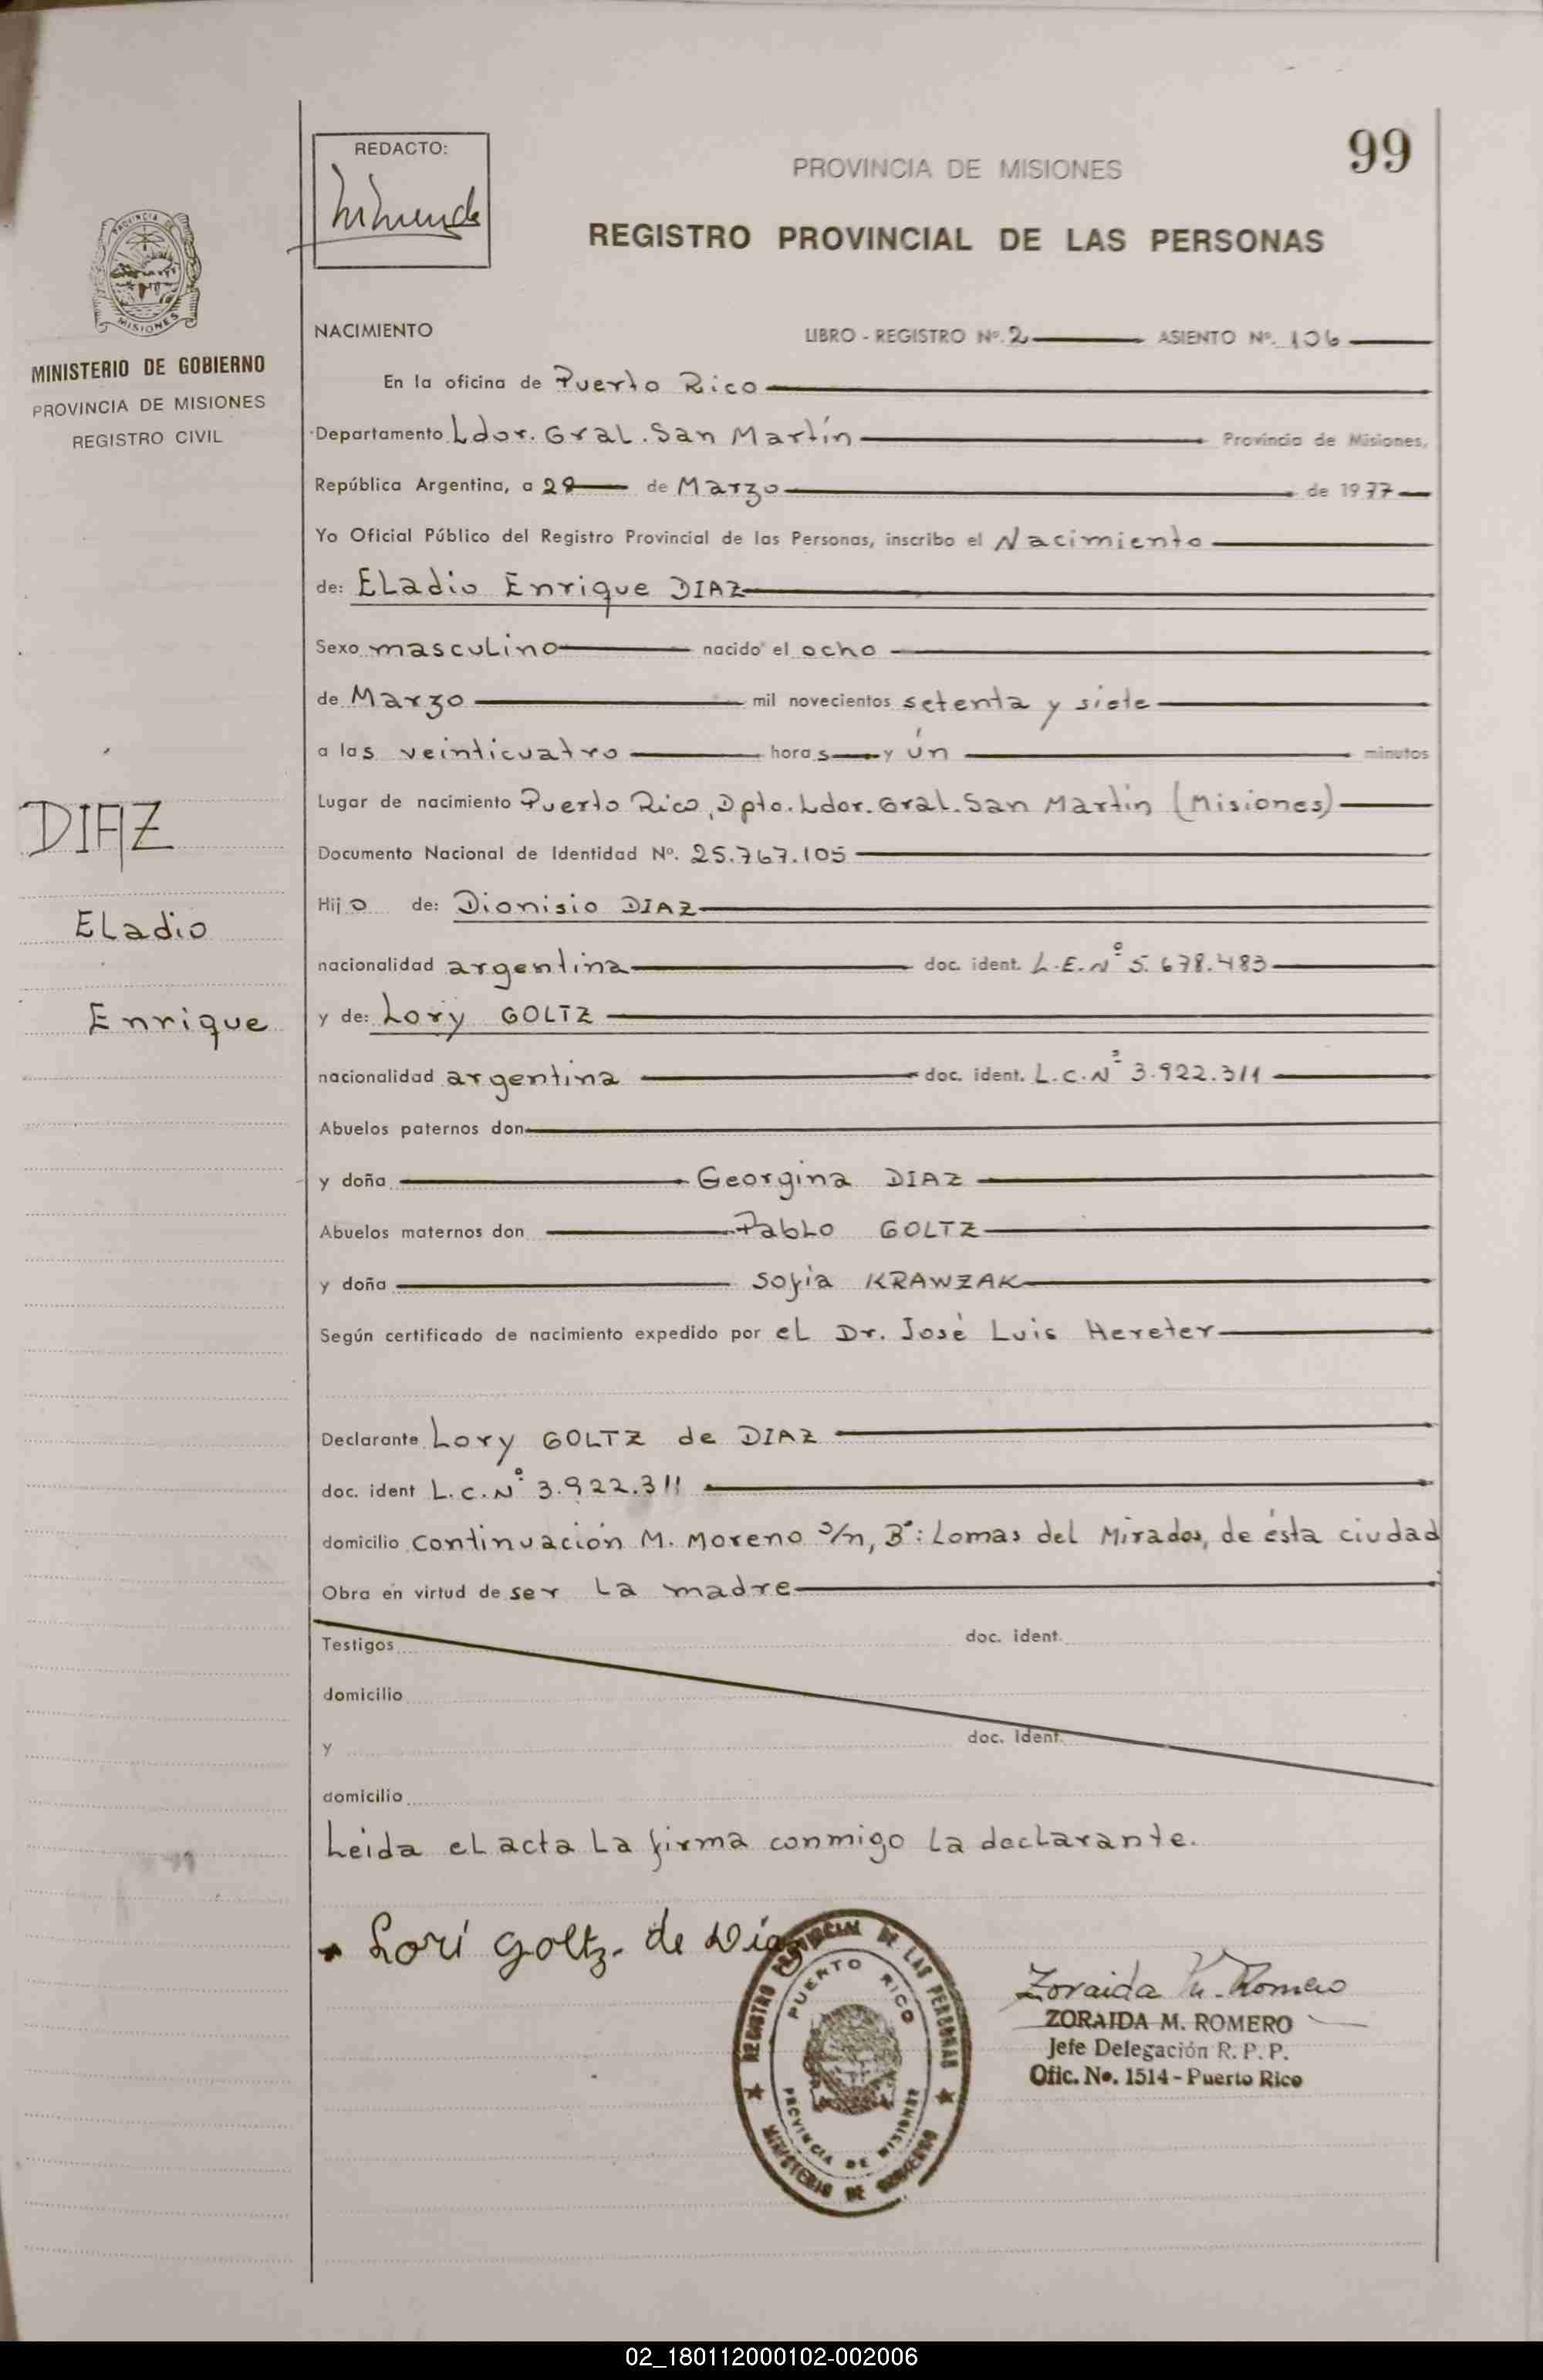 99
REDACTO:
PROVINCIA DE MISIONES
REGISTRO PROVINCIAL DE LAS PERSONAS
PROVINCIA DE MISIONES
MINISTERIO DE GOBIERNO
PROVINCIA DE MISIONES
REGISTRO CIVIL
NACIMIENTO LIBRO - REGISTRO Nº. 2 ASIENTO Nº. 106
En la oficina de Puerto Rico
Departamento Ldor. Gral. San Martín Provincia de Misiones,
República Argentina, a 29 de Marzo de 1977
Yo Oficial Público del Registro Provincial de las Personas, inscribo el Nacimiento
de: Eladio Enrique DIAZ
Sexo masculino nacido el ocho
de Marzo mil novecientos setenta y siete
a las veinticuatro horas y ún minutos
Lugar de nacimiento Puerto Rico, Dpto. Ldor. Gral. San Martín (Misiones)
DIAZ
Documento Nacional de Identidad Nº. 25.767.105
Hijo de: Dionisio DIAZ
Eladio
nacionalidad argentina doc. ident. L.E.Nº 5.678.483
Enrique
y de: Lory GOLTZ
nacionalidad argentina doc. ident. L.C.Nº 3.922.311
Abuelos paternos don
y doña Georgina DIAZ
Abuelos maternos don Pablo GOLTZ
y doña Sofia KRAWZAK
Según certificado de nacimiento expedido por el Dr. José Luis Hereter
Declarante Lory GOLTZ de DIAZ
doc. ident L.C.Nº 3.922.311
domicilio Continuación M. Moreno s/n, Bº: Lomas del Mirador, de ésta ciudad
Obra en virtud de ser la madre
Testigos doc. ident.
domicilio
y doc. ident.
domicilio
Leida el acta la firma conmigo la declarante.
Lorí Goltz. de Díaz
REGISTRO PROVINCIAL DE LAS PERSONAS
PUERTO RICO
PROVINCIA DE MISIONES
MINISTERIO DE GOBIERNO
Zoraida M. Romero
ZORAIDA M. ROMERO
Jefe Delegación R. P. P.
Ofic. No. 1514 - Puerto Rico
02_180112000102-002006